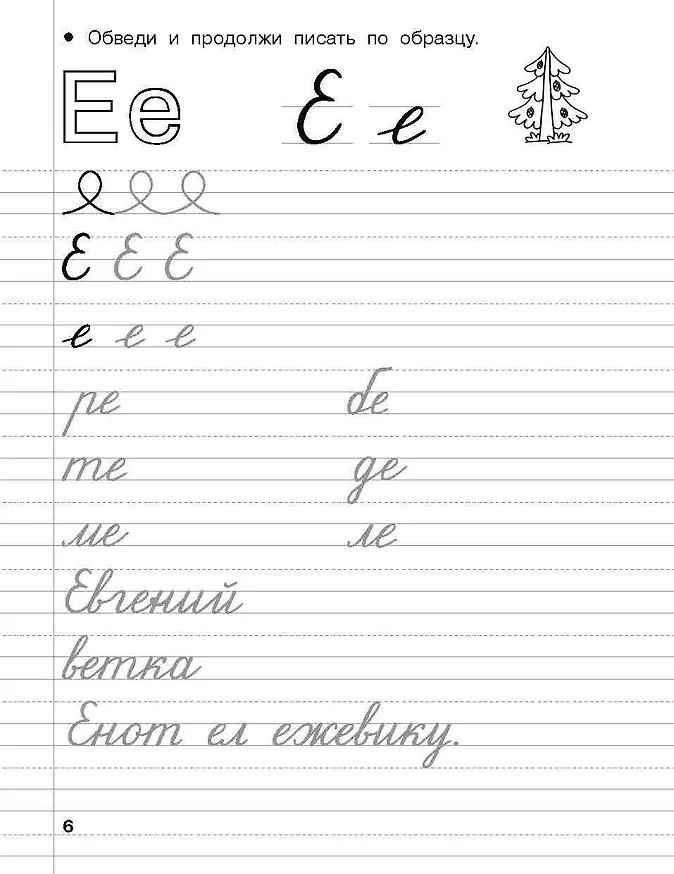 Обведи и продолжи писать по образцу.
Ее Е е
Е Е Е
е е е
ре бе
те де
ме ле
Евгений
ветка
Енот ел ежевику.
6